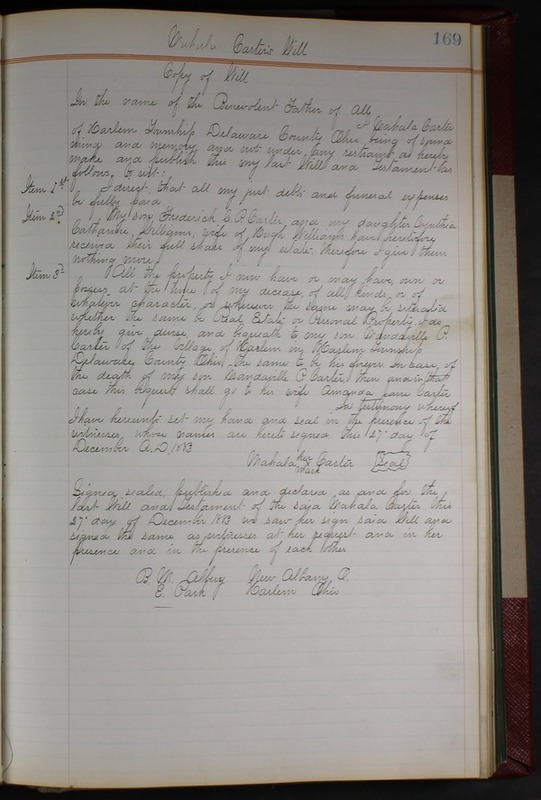 169
Mahala Carter's Will
Copy of Will
In the name of the Benevolent Father of All,
I Mahala Carter
of Harlem Township Delaware County Ohio, being of sound
mind and memory and not under any restraint do hereby
make and publish this my last Will and Testament as
follows, to wit:
Item 1st I direct, that all my just debts and funeral expenses
be fully paid
Item 2nd My son Frederick C. P. Carter, and my daughter Cynthia
Catharine Williams, wife of Hugh Williams have heretofore
received their full share of my estate, therefore I give them
nothing more
Item 3d All the property I now have or may have, own or
possess at the time of my decease, of all kinds or of
whatever character, or wherever the same may be situated
whether the same be Real Estate or Personal Property, I do
hereby give devise and bequeath to my son Mandaville P.
Carter of the Village of Harlem in Harlem Township
Delaware County Ohio, the same to be his forever. In case of
the death of my son Mandaville P. Carter, then and in that
case this bequest shall go to his wife Amanda Jane Carter
In testimony whereof
I have hereunto set my hand and seal in the presence of the
witnesses whose names are hereto signed this 27" day of
December A.D. 1883
Mahala her mark Carter Seal
Signed sealed, published and declared as and for the
last Will and Testament of the said Mahala Carter this
27" day of December 1883 we saw her sign said Will and
signed the same as witnesses at her request and in her
presence and in the presence of each other
B. M. Albery New Albany O.
E. Park Harlem Ohio